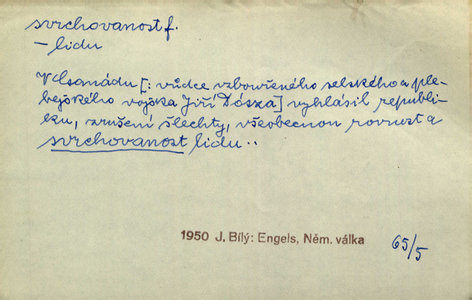 svrchovanost f.
– lidu
V Csanádu [: vůdce vzbouřeného selského a ple-
bejského vojska Jiří Dósza] vyhlásil republi-
ku, zrušení šlechty, všeobecnou rovnost a
svrchovanost lidu ..
1950 J. Bílý: Engels, Něm. válka
65/5